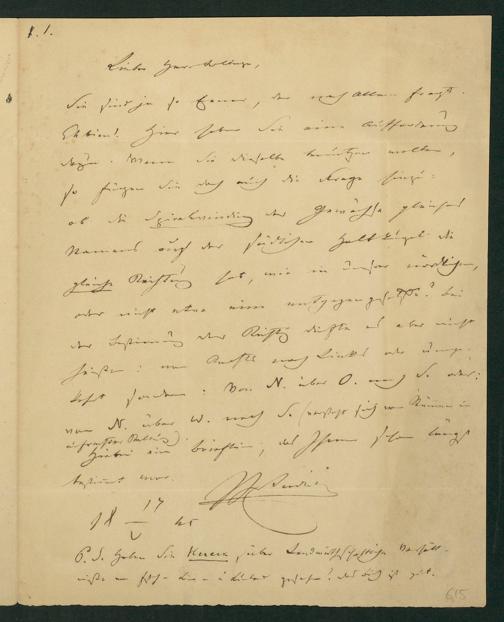 Lieber Herr College,
Sie sind ja so Einer, der nach Allem fragt.
Hier haben Sie eine Aufforderung
dazu. Wenn Sie dieselbe benützen wollen,
so fügen Sie doch auch die Frage hinzu:
ob die Spiralwindung der Gewächse gleichen
Namens auf der südlichen Halbkugel die
gleiche Richtung hat, wie in unserer nördlichen,
oder nicht etwa eine entgegengesetzte? Bei
der Bestimmung der Richtung dürfte es aber nicht
heißen: von Rechts nach Links oder umge-
kehrt sondern: Von N. über O. nach S. oder:
von N. über W. nach S. (versteht sich von Stämmen in
Hierbei ein Brieflein, das Ihnen schon längst
bestimmt war.
18 17/V 45
P. S. Haben Sie über Landwirthschaftliche Verhält-
nisse gesehen? das Buch ist gut.
615